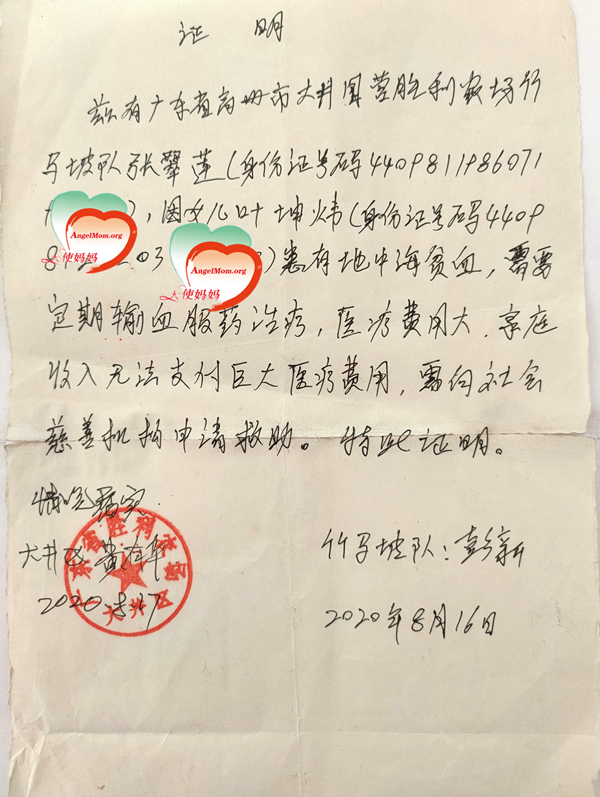 证 明
兹有广东省高州市大井国营胜利农场竹
马坡队张翠莲(身份证号码4409811986071
),因女儿叶坤炜(身份证号码4409
8 203 )患有地中海贫血,需要
定期输血服药治疗,医疗费用大,家庭
收入无法支付巨大医疗费用,需向社会
慈善机构申请救助。特此证明。
AngelMom.org
天使妈妈
AngelMom.org
天使妈妈
情况属实.
大井区
2020.8.17
胜利
大井区
竹马坡队:彭新
2020年8月16日